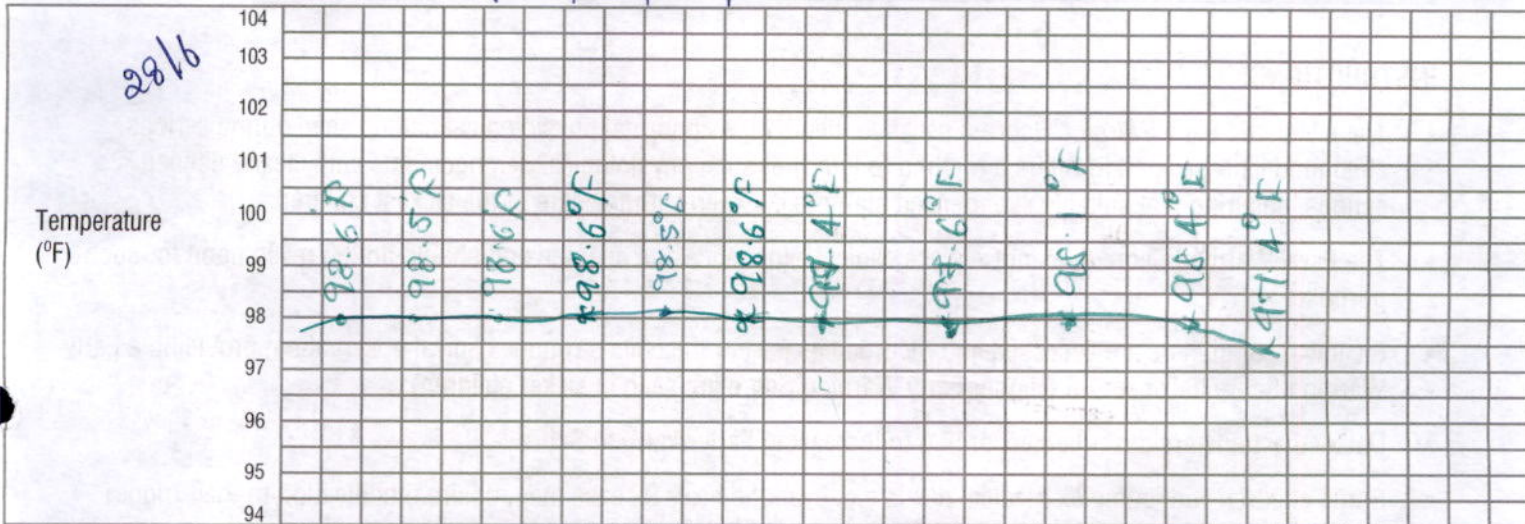 28/6
Temperature
(°F)
104
103
102
101
100
99
98
97
96
95
94
98.6 F
98.5 F
98.6 F
98.6°F
98.5°F
98.6°F
98.4°F
98.6°F
98.1°F
98.4°F
97.4°